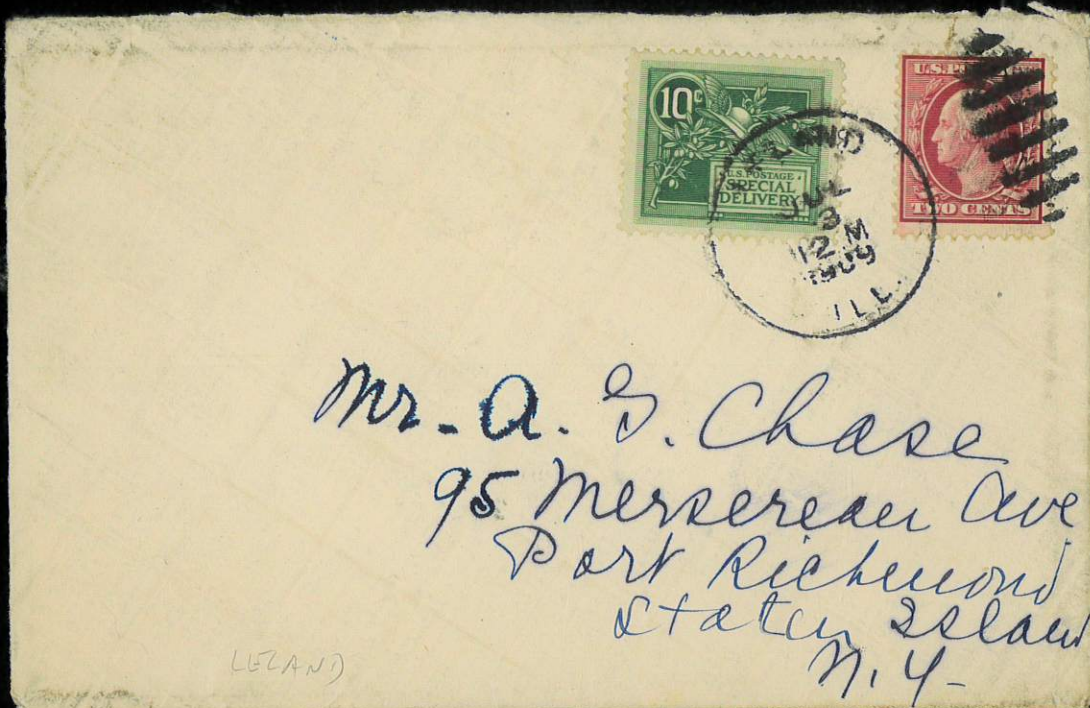 10c
U.S. POSTAGE
SPECIAL
DELIVERY
TWO CENTS
LELAND
JUL
3
12 M
1909
ILL.
Mr. A. G. Chase
95 Mersereau Ave
Port Richmond
Staten Island
N.Y.
LELAND